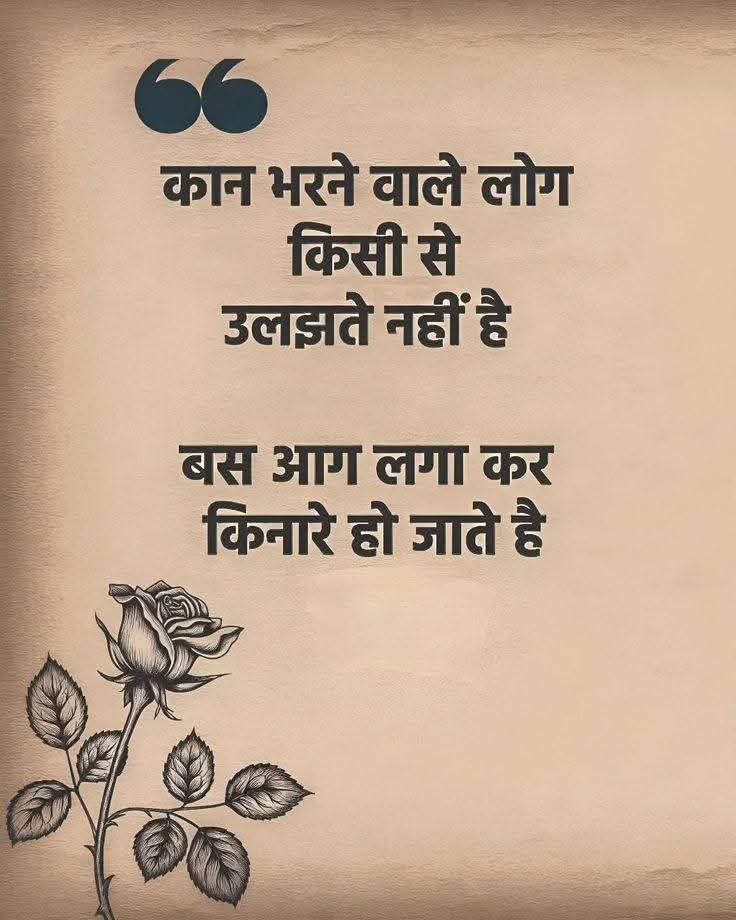 ❝
कान भरने वाले लोग
किसी से
उलझते नहीं है
बस आग लगा कर
किनारे हो जाते है